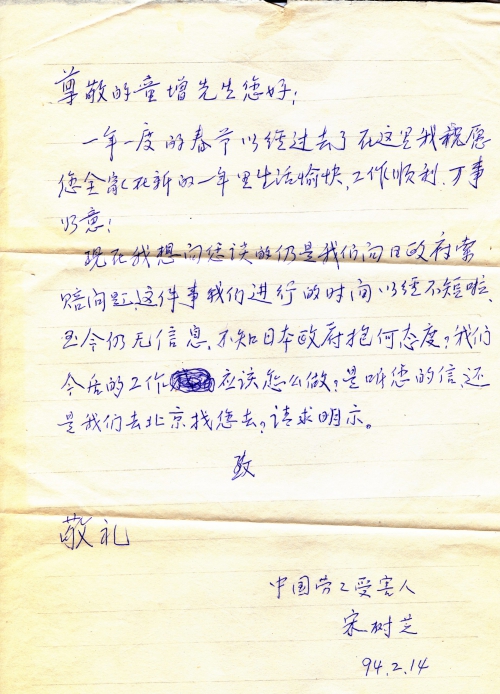 尊敬的童增先生您好!
一年一度的春节以经过去了在这里我祝愿
您全家在新的一年里生活愉快,工作顺利,万事
如意!
现在我想向您谈的仍是我们向日政府索
赔问题,这件事我们进行的时间以经不短啦
至今仍无信息,不知日本政府抱何态度?我们
今后的工作应该怎么做,是听您的信还
是我们去北京找您去?请求明示。
致
敬礼
中国劳工受害人
宋树芝
94.2.14